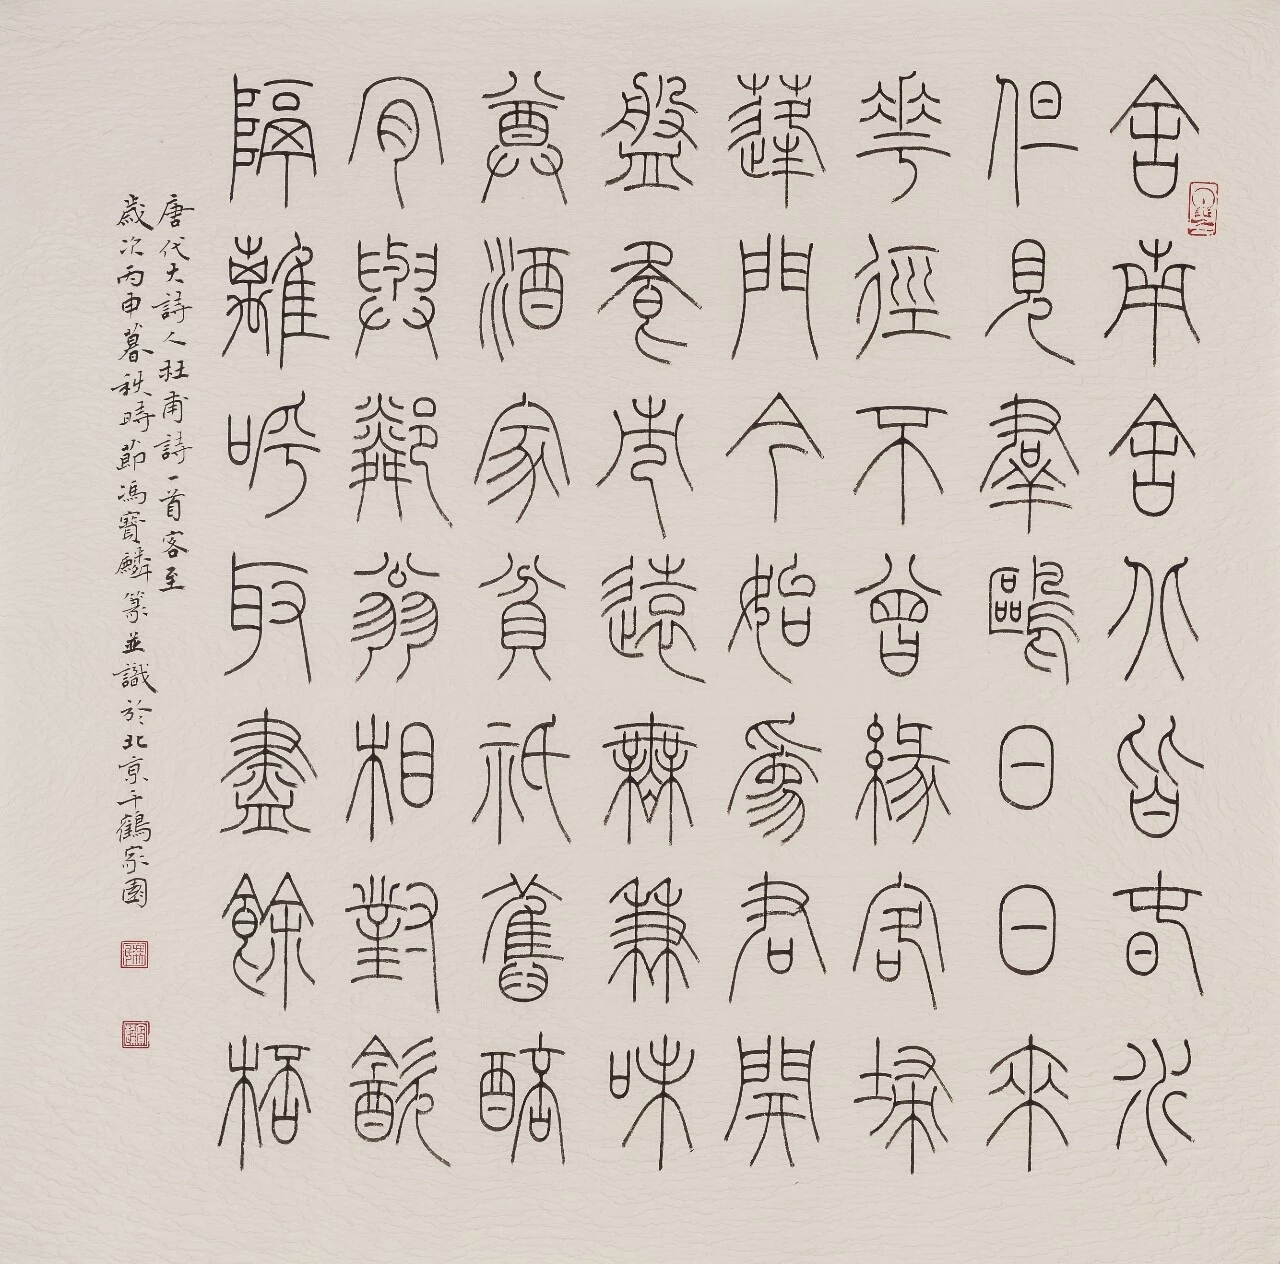 舍南舍北皆春水
但見羣鷗日日來
花徑不曾緣客掃
蓬門今始為君開
盤飧市遠無兼味
尊酒家貧祇舊醅
肎與鄰翁相對飲
隔離呼取盡餘桮
唐代大詩人杜甫詩一首客至
歲次丙申暮秋時節馮寶麟篆並識於北京千鶴家園